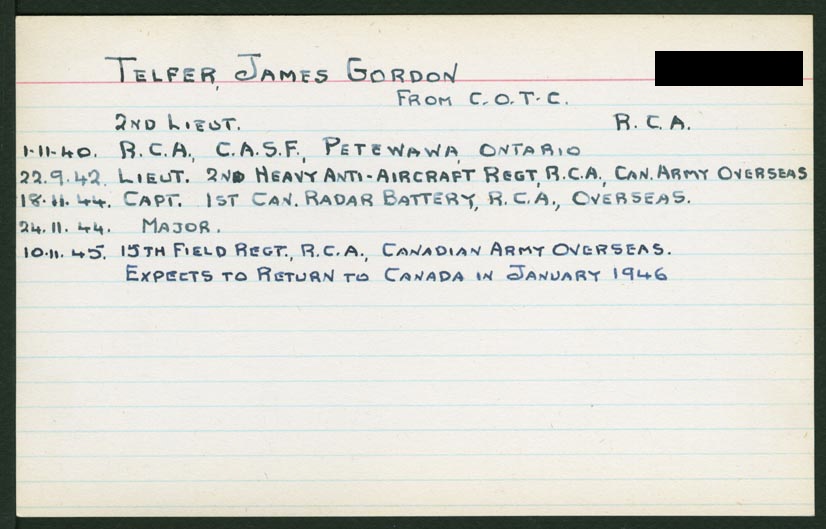 TELFER, JAMES GORDON
FROM C.O.T.C.
2ND LIEUT. R.C.A.
1.11.40. R.C.A., C.A.S.F., PETEWAWA, ONTARIO
22.9.42. LIEUT. 2ND HEAVY ANTI-AIRCRAFT REGT, R.C.A., CAN. ARMY OVERSEAS
18.11.44. CAPT. 1ST CAN. RADAR BATTERY, R.C.A., OVERSEAS.
24.11.44. MAJOR.
10.11.45. 15TH FIELD REGT., R.C.A., CANADIAN ARMY OVERSEAS.
EXPECTS TO RETURN TO CANADA IN JANUARY 1946